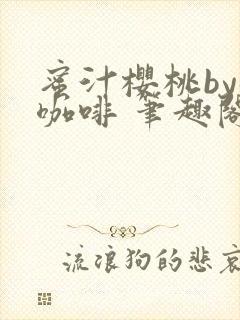 蜜汁樱桃by
咖啡 笔趣阁
流浪狗的悲哀